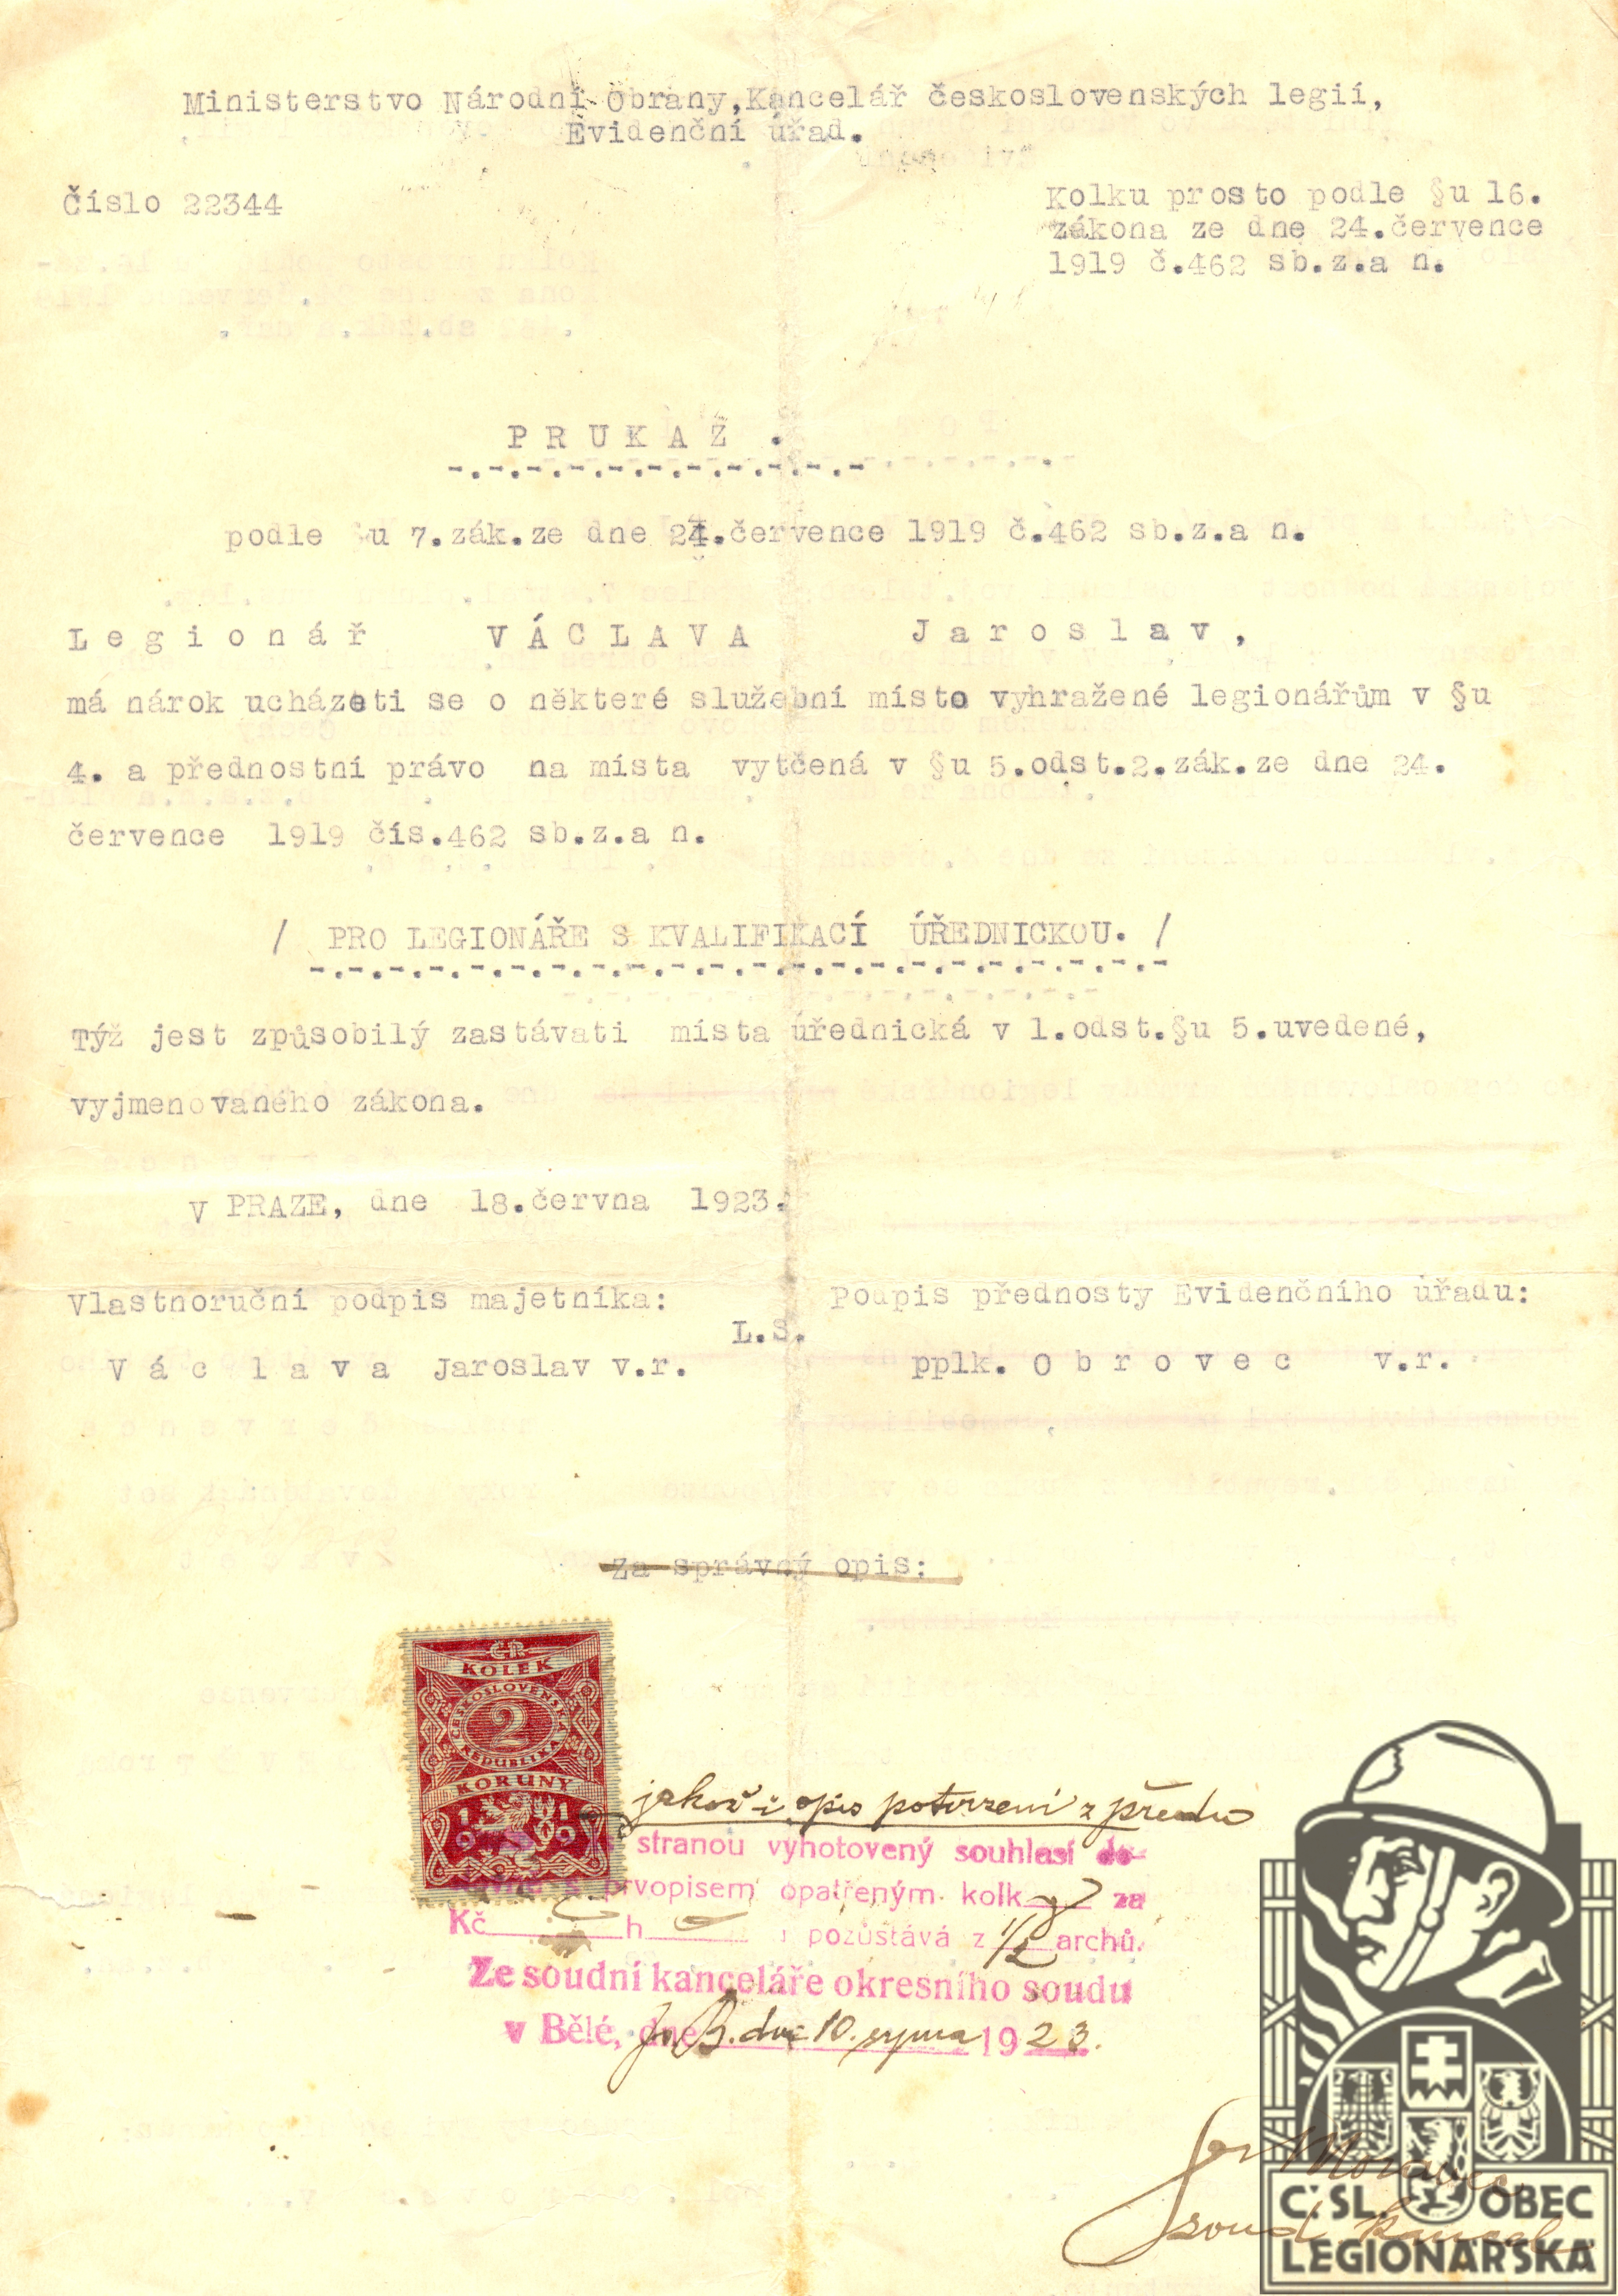 Ministerstvo Národní Obrany,Kancelář československých legií,
Evidenční úřad.
Číslo 22344
Kolku prosto podle §u 16.
zákona ze dne 24.července
1919 č.462 sb.z.a n.
P R U K A Z .
podle §u 7.zák.ze dne 24.července 1919 č.462 sb.z.a n.
L e g i o n á ř V Á C L A V A J a r o s l a v ,
má nárok ucházeti se o některé služební místo vyhražené legionářům v §u
4. a přednostní právo na místa vytčená v §u 5.odst.2.zák.ze dne 24.
července 1919 čís.462 sb.z.a n.
/ PRO LEGIONÁŘE S KVALIFIKACÍ ÚŘEDNICKOU. /
Týž jest způsobilý zastávati místa úřednická v 1.odst.§u 5.uvedené,
vyjmenovaného zákona.
V PRAZE, dne 18.června 1923.
Vlastnoruční podpis majetníka: Podpis přednosty Evidenčního úřadu:
L.S.
V á c l a v a Jaroslav v.r. pplk. O b r o v e c v.r.
Za správný opis:
ČR
KOLEK
ČESKOSLOVENSKÁ
2
REPUBLIKA
KORUNY
1919
jakož i opis potvrzení z předu
stranou vyhotovený souhlasí do-
s prvopisem opatřeným kolk za
Kč h pozůstává z 1/2 archů.
Ze soudní kanceláře okresního soudu
v Bělé, dne 10. srpna 1923.
Č:SL. OBEC
LEGIONÁŘSKÁ